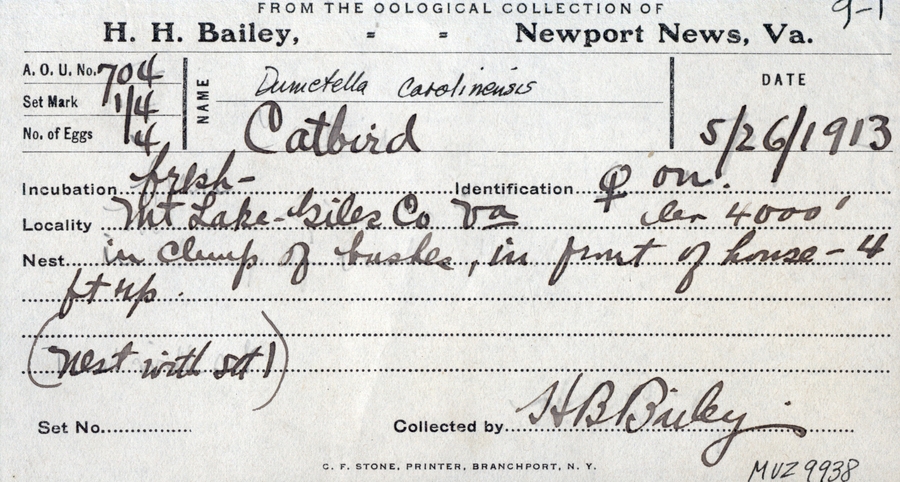 FROM THE OOLOGICAL COLLECTION OF
9-1
H. H. Bailey, = = Newport News, Va.
A. O. U. No. 704
Set Mark 1/4
No. of Eggs 4
NAME
Dumetella carolinensis
Catbird
DATE
5/26/1913
Incubation fresh- Identification ♀ on.
Locality Mt Lake-Giles Co Va Elev 4000'
Nest in clump of bushes, in front of house - 4
ft up.
(Nest with set 1)
Set No. Collected by HB Bailey
C. F. STONE, PRINTER, BRANCHPORT, N. Y.
MVZ 9938